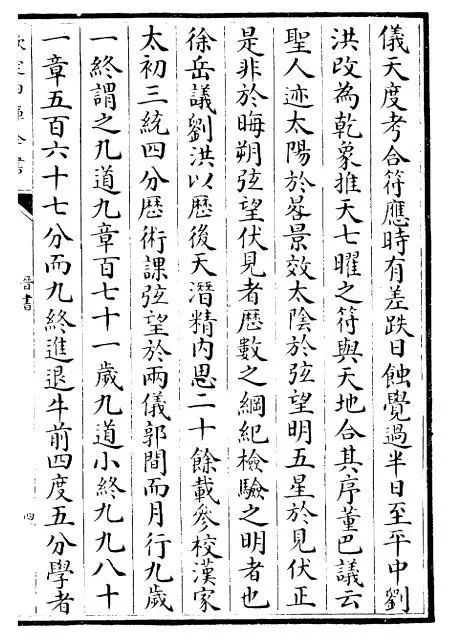 儀天度考合符應時有差跌日蝕覺過半日至平中劉
洪改為乾象推天七曜之符與天地合其序董巴議云
聖人迹太陽於晷景效太陰於弦望明五星於見伏正
是非於晦朔弦望伏見者歴數之綱紀檢驗之明者也
徐岳議劉洪以歴後天潛精内思二十餘載參校漢家
太初三統四分歴術課弦望於兩儀郭間而月行九歲
一終謂之九道九章百七十一歲九道小終九九八十
一章五百六十七分而九終進退牛前四度五分學者
欽定四庫全書
晉書
四